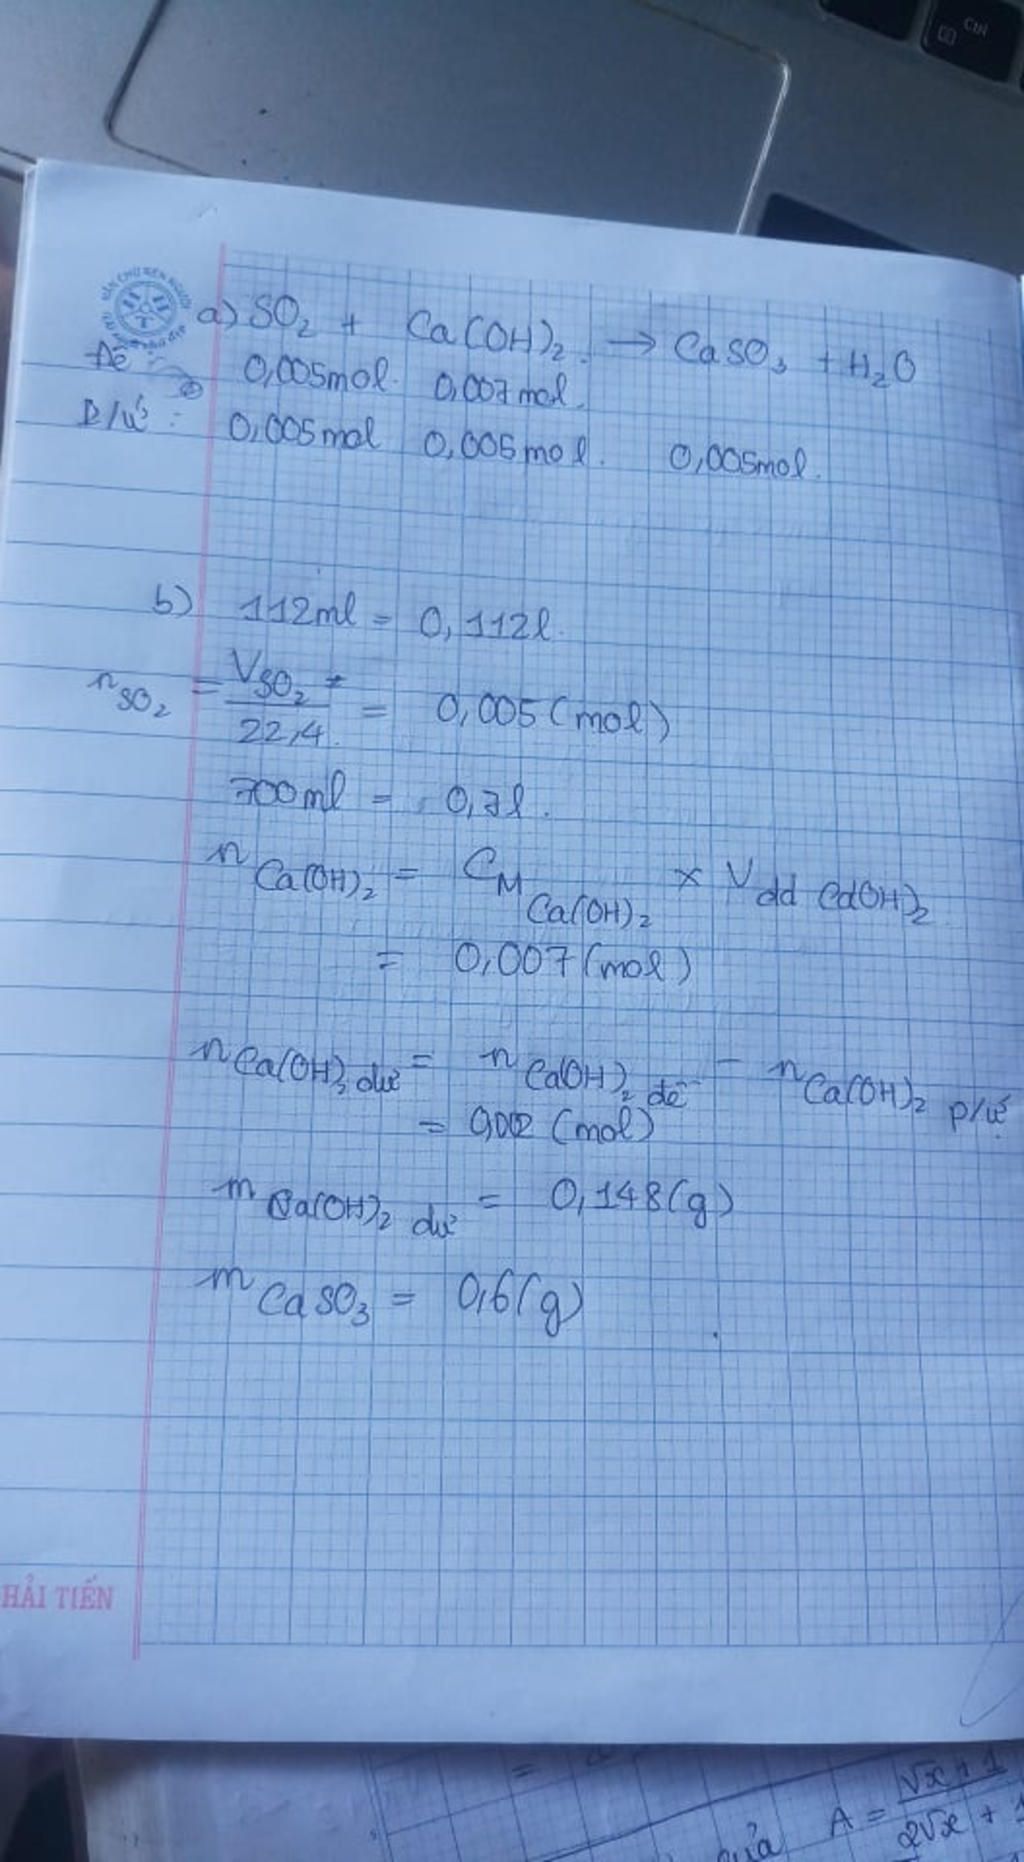 Ctrl
a) SO₂ + Ca(OH)₂ → CaSO₃ + H₂O
Đề: 0,005mol 0,007mol.
P/ứ: 0,005mol 0,005mol. 0,005mol.
b) 112ml = 0,112l.
n SO₂ = V SO₂ / 22,4 = 0,005 (mol)
700ml = 0,7l.
n Ca(OH)₂ = C M Ca(OH)₂ × V dd Ca(OH)₂
= 0,007 (mol)
n Ca(OH)₂ dư = n Ca(OH)₂ đề - n Ca(OH)₂ p/ứ
= 0,002 (mol)
m Ca(OH)₂ dư = 0,148 (g)
m CaSO₃ = 0,6 (g)
HẢI TIẾN
A = √x + 1 / 2√x +
của